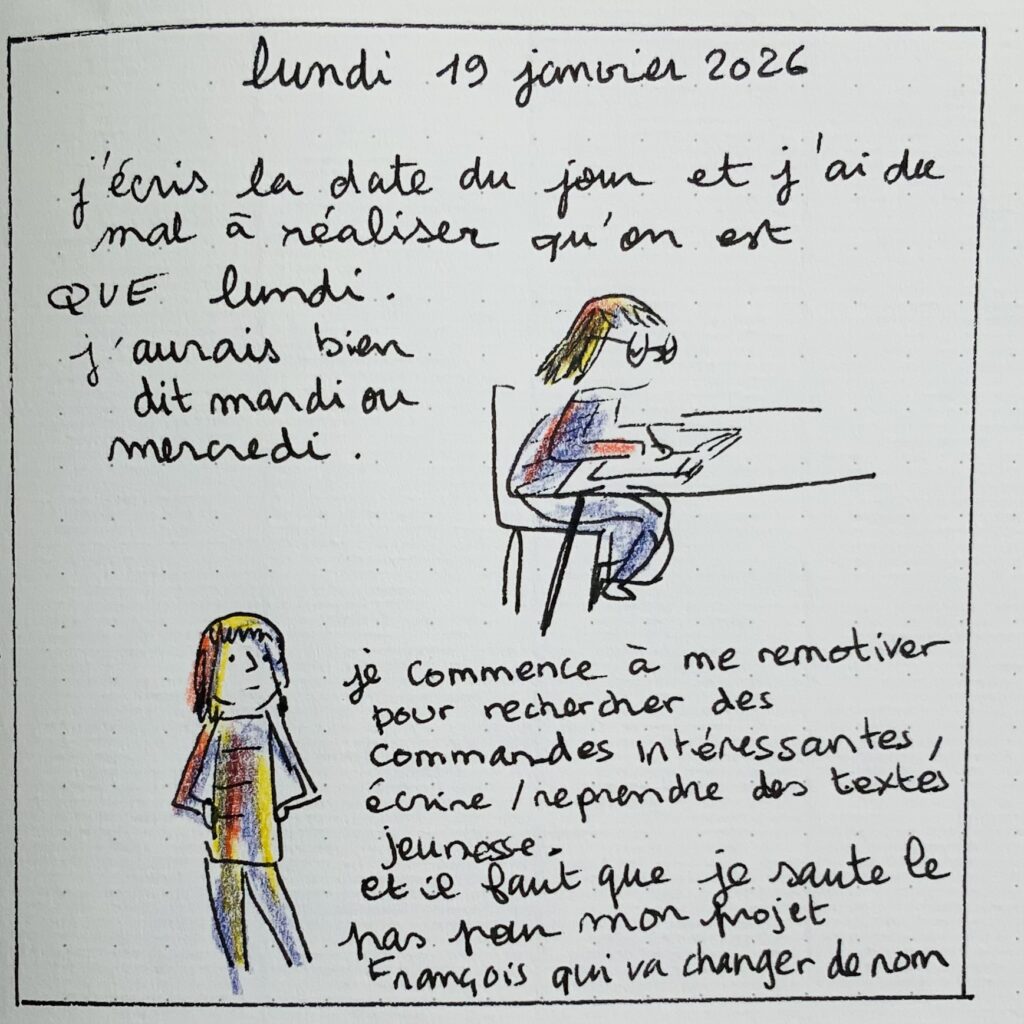 lundi 19 janvier 2026
j'écris la date du jour et j'ai du
mal à réaliser qu'on est
QUE lundi.
j'aurais bien
dit mardi ou
mercredi.
je commence à me remotiver
pour rechercher des
commandes intéressantes,
écrire / reprendre des textes
jeunesse.
et il faut que je saute le
pas pour mon projet
François qui va changer de nom